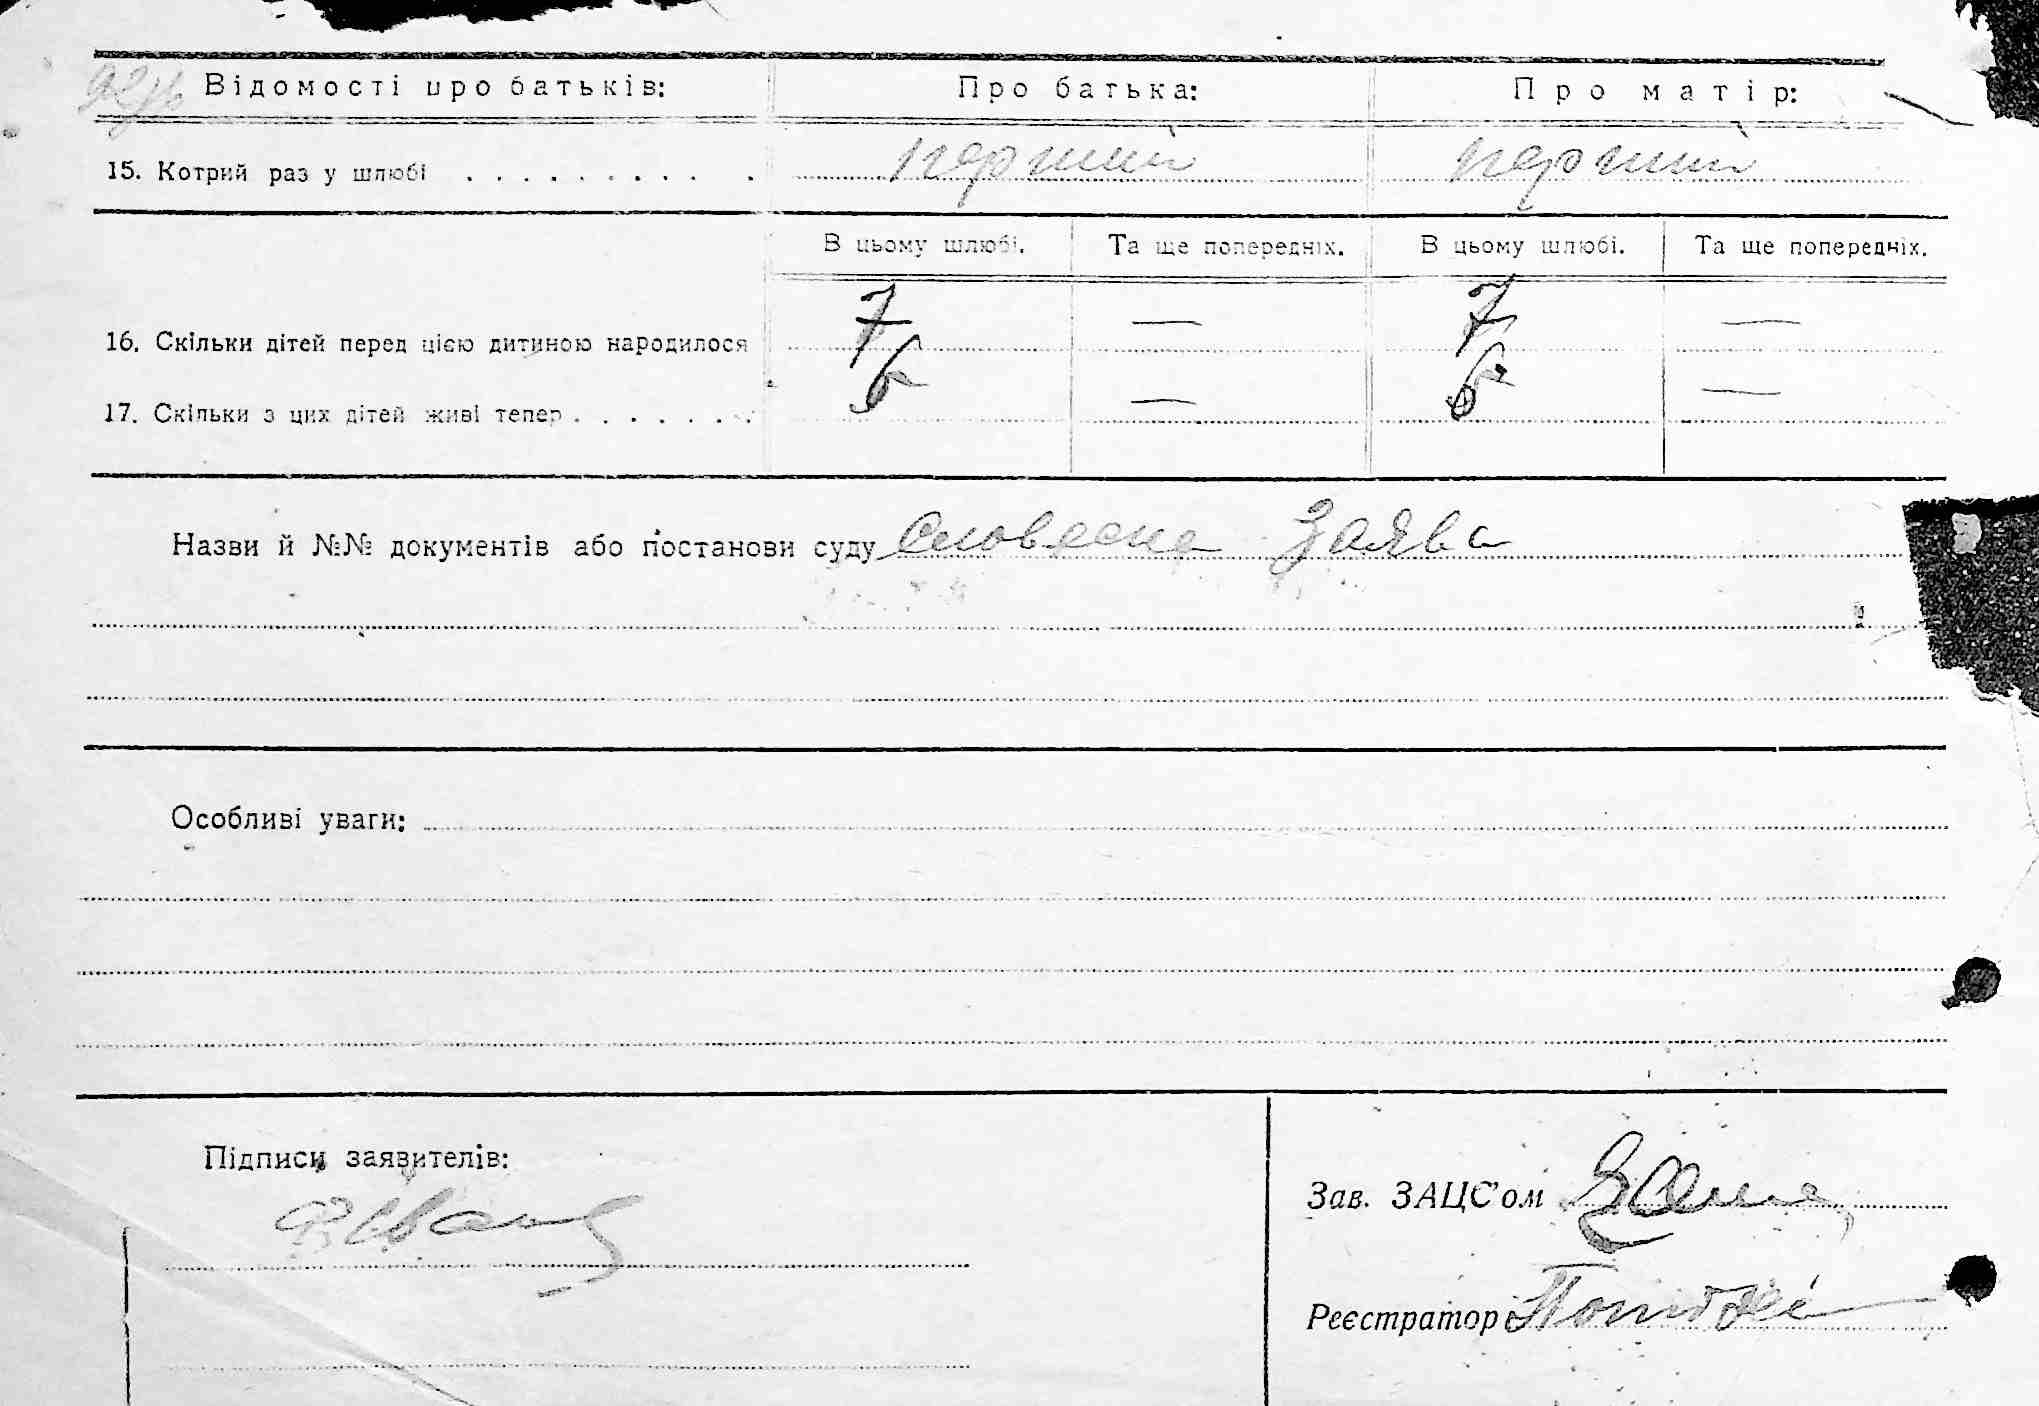 Відомості про батьків: Про батька: Про матір:
15. Котрий раз у шлюбі . . . . . . . . . . перший перший
В цьому шлюбі. Та ще попередніх. В цьому шлюбі. Та ще попередніх.
16. Скільки дітей перед цією дитиною народилося 7 — 7 —
17. Скільки з цих дітей живі тепер . . . . . . . 6 — 6 —
Назви й №№ документів або постанови суду Словесна Заява
Особливі уваги:
Підписи заявителів:
Зав. ЗАЦС'ом
Реєстратор